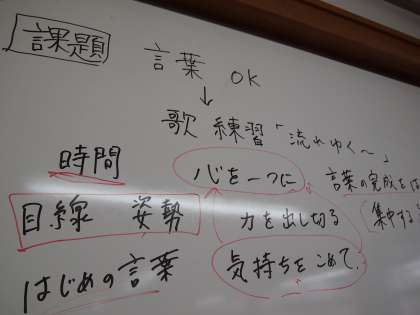 課題
言葉 OK
↓
歌練習「流れゆく~」
時間
心を一つに
言葉の完成をは
目線 姿勢
力を出し切る
集中する
はじめの言葉
気持ちをこめて.